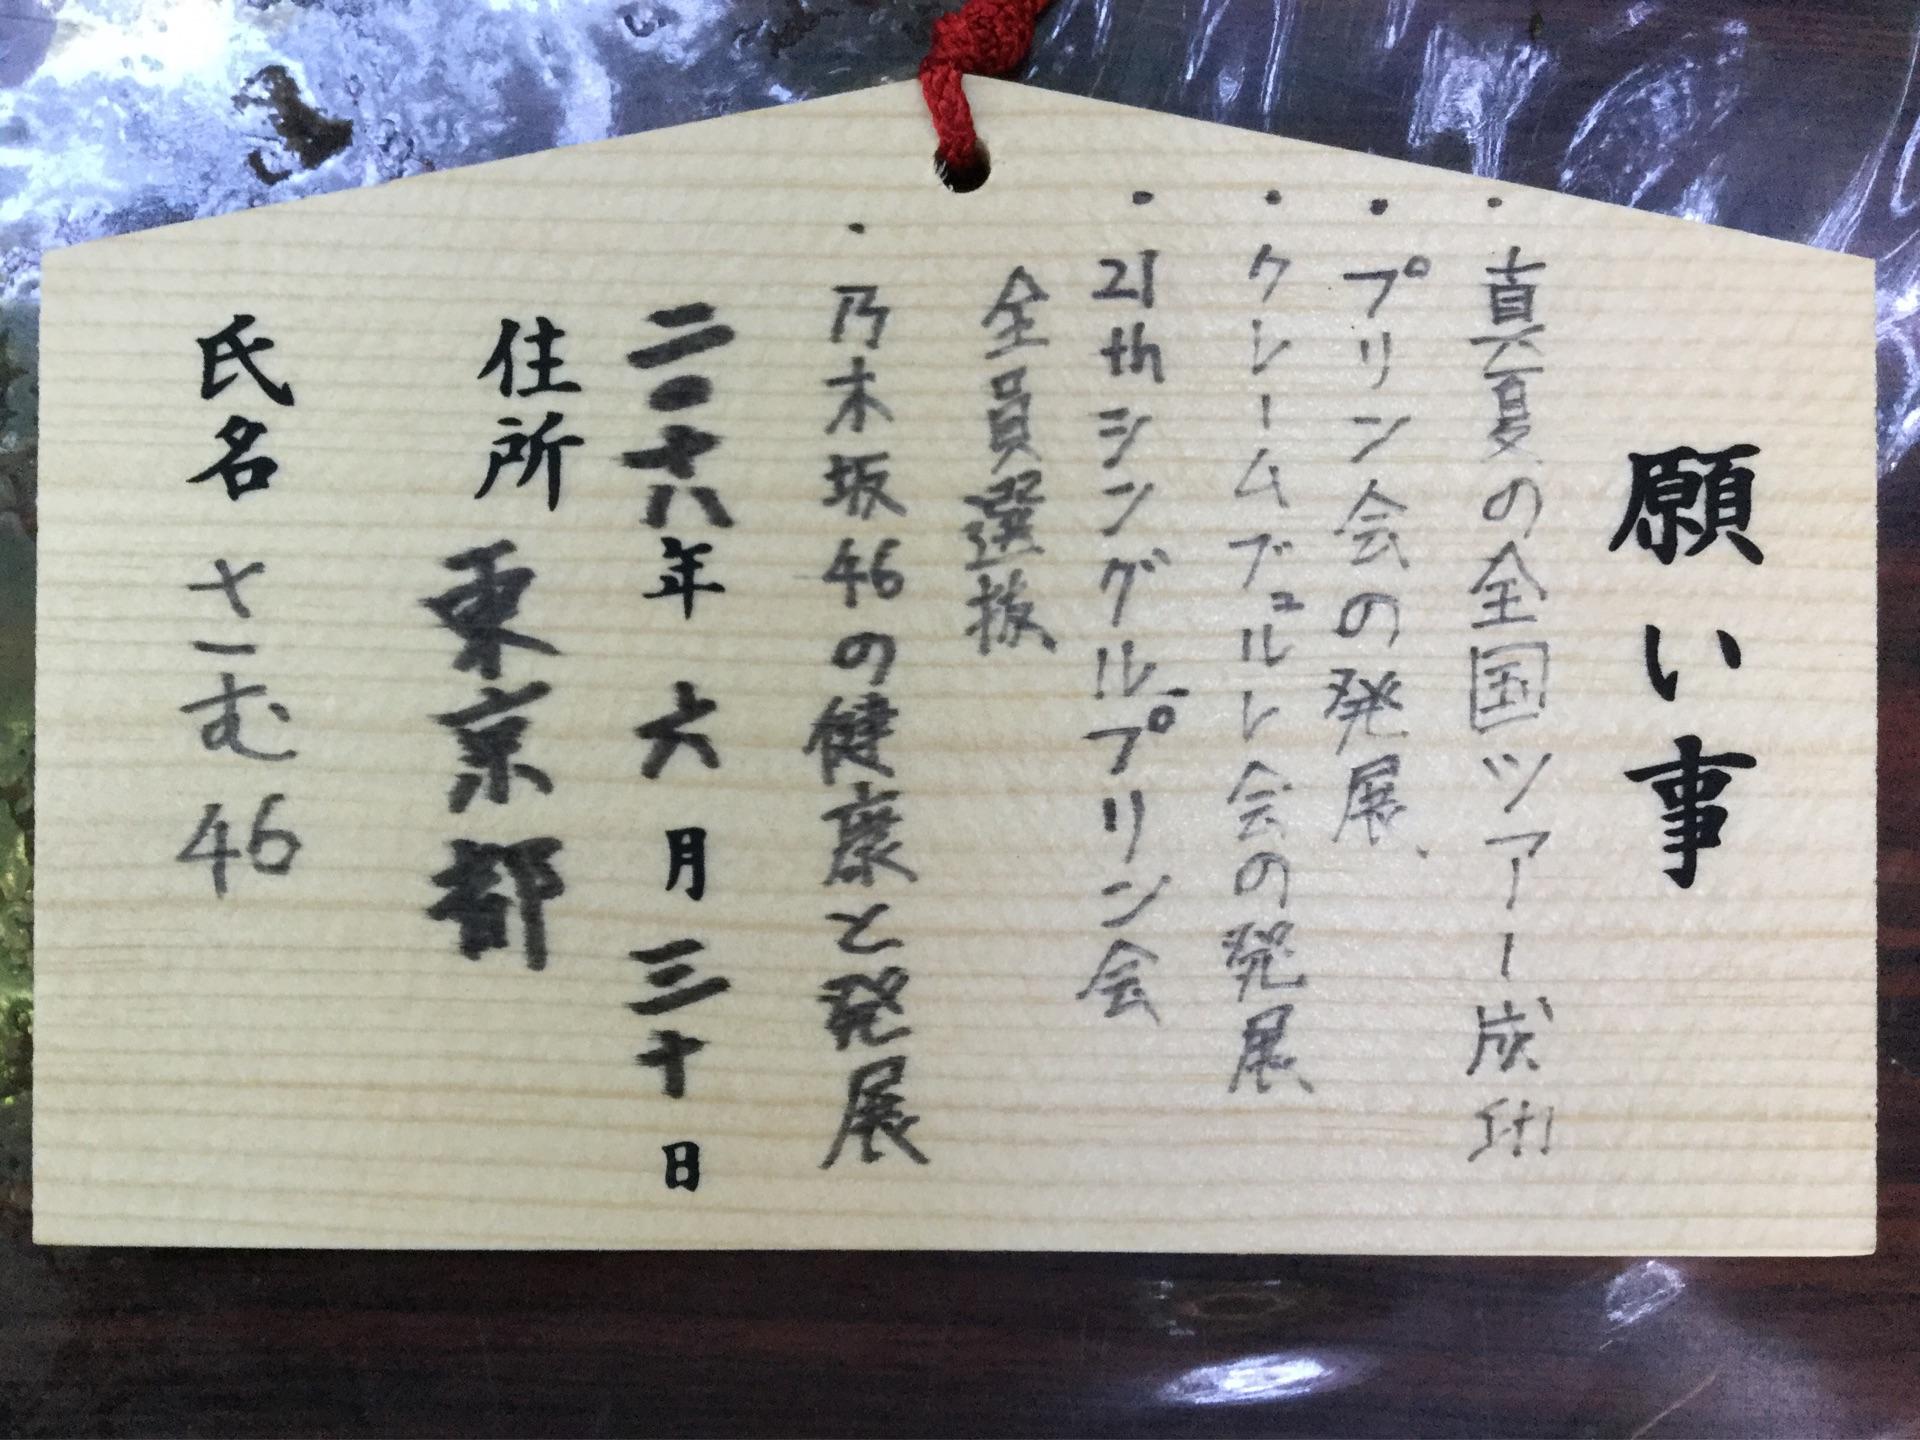 願い事
・真夏の全国ツアー成功
・プリン会の発展、
・クレームブュルレ会の発展、
・21thシングル、プリン会
全員選抜、
・乃木坂46の健康と発展
二〇十八年 六月 三十日
住所 東京都
氏名 さーむ46